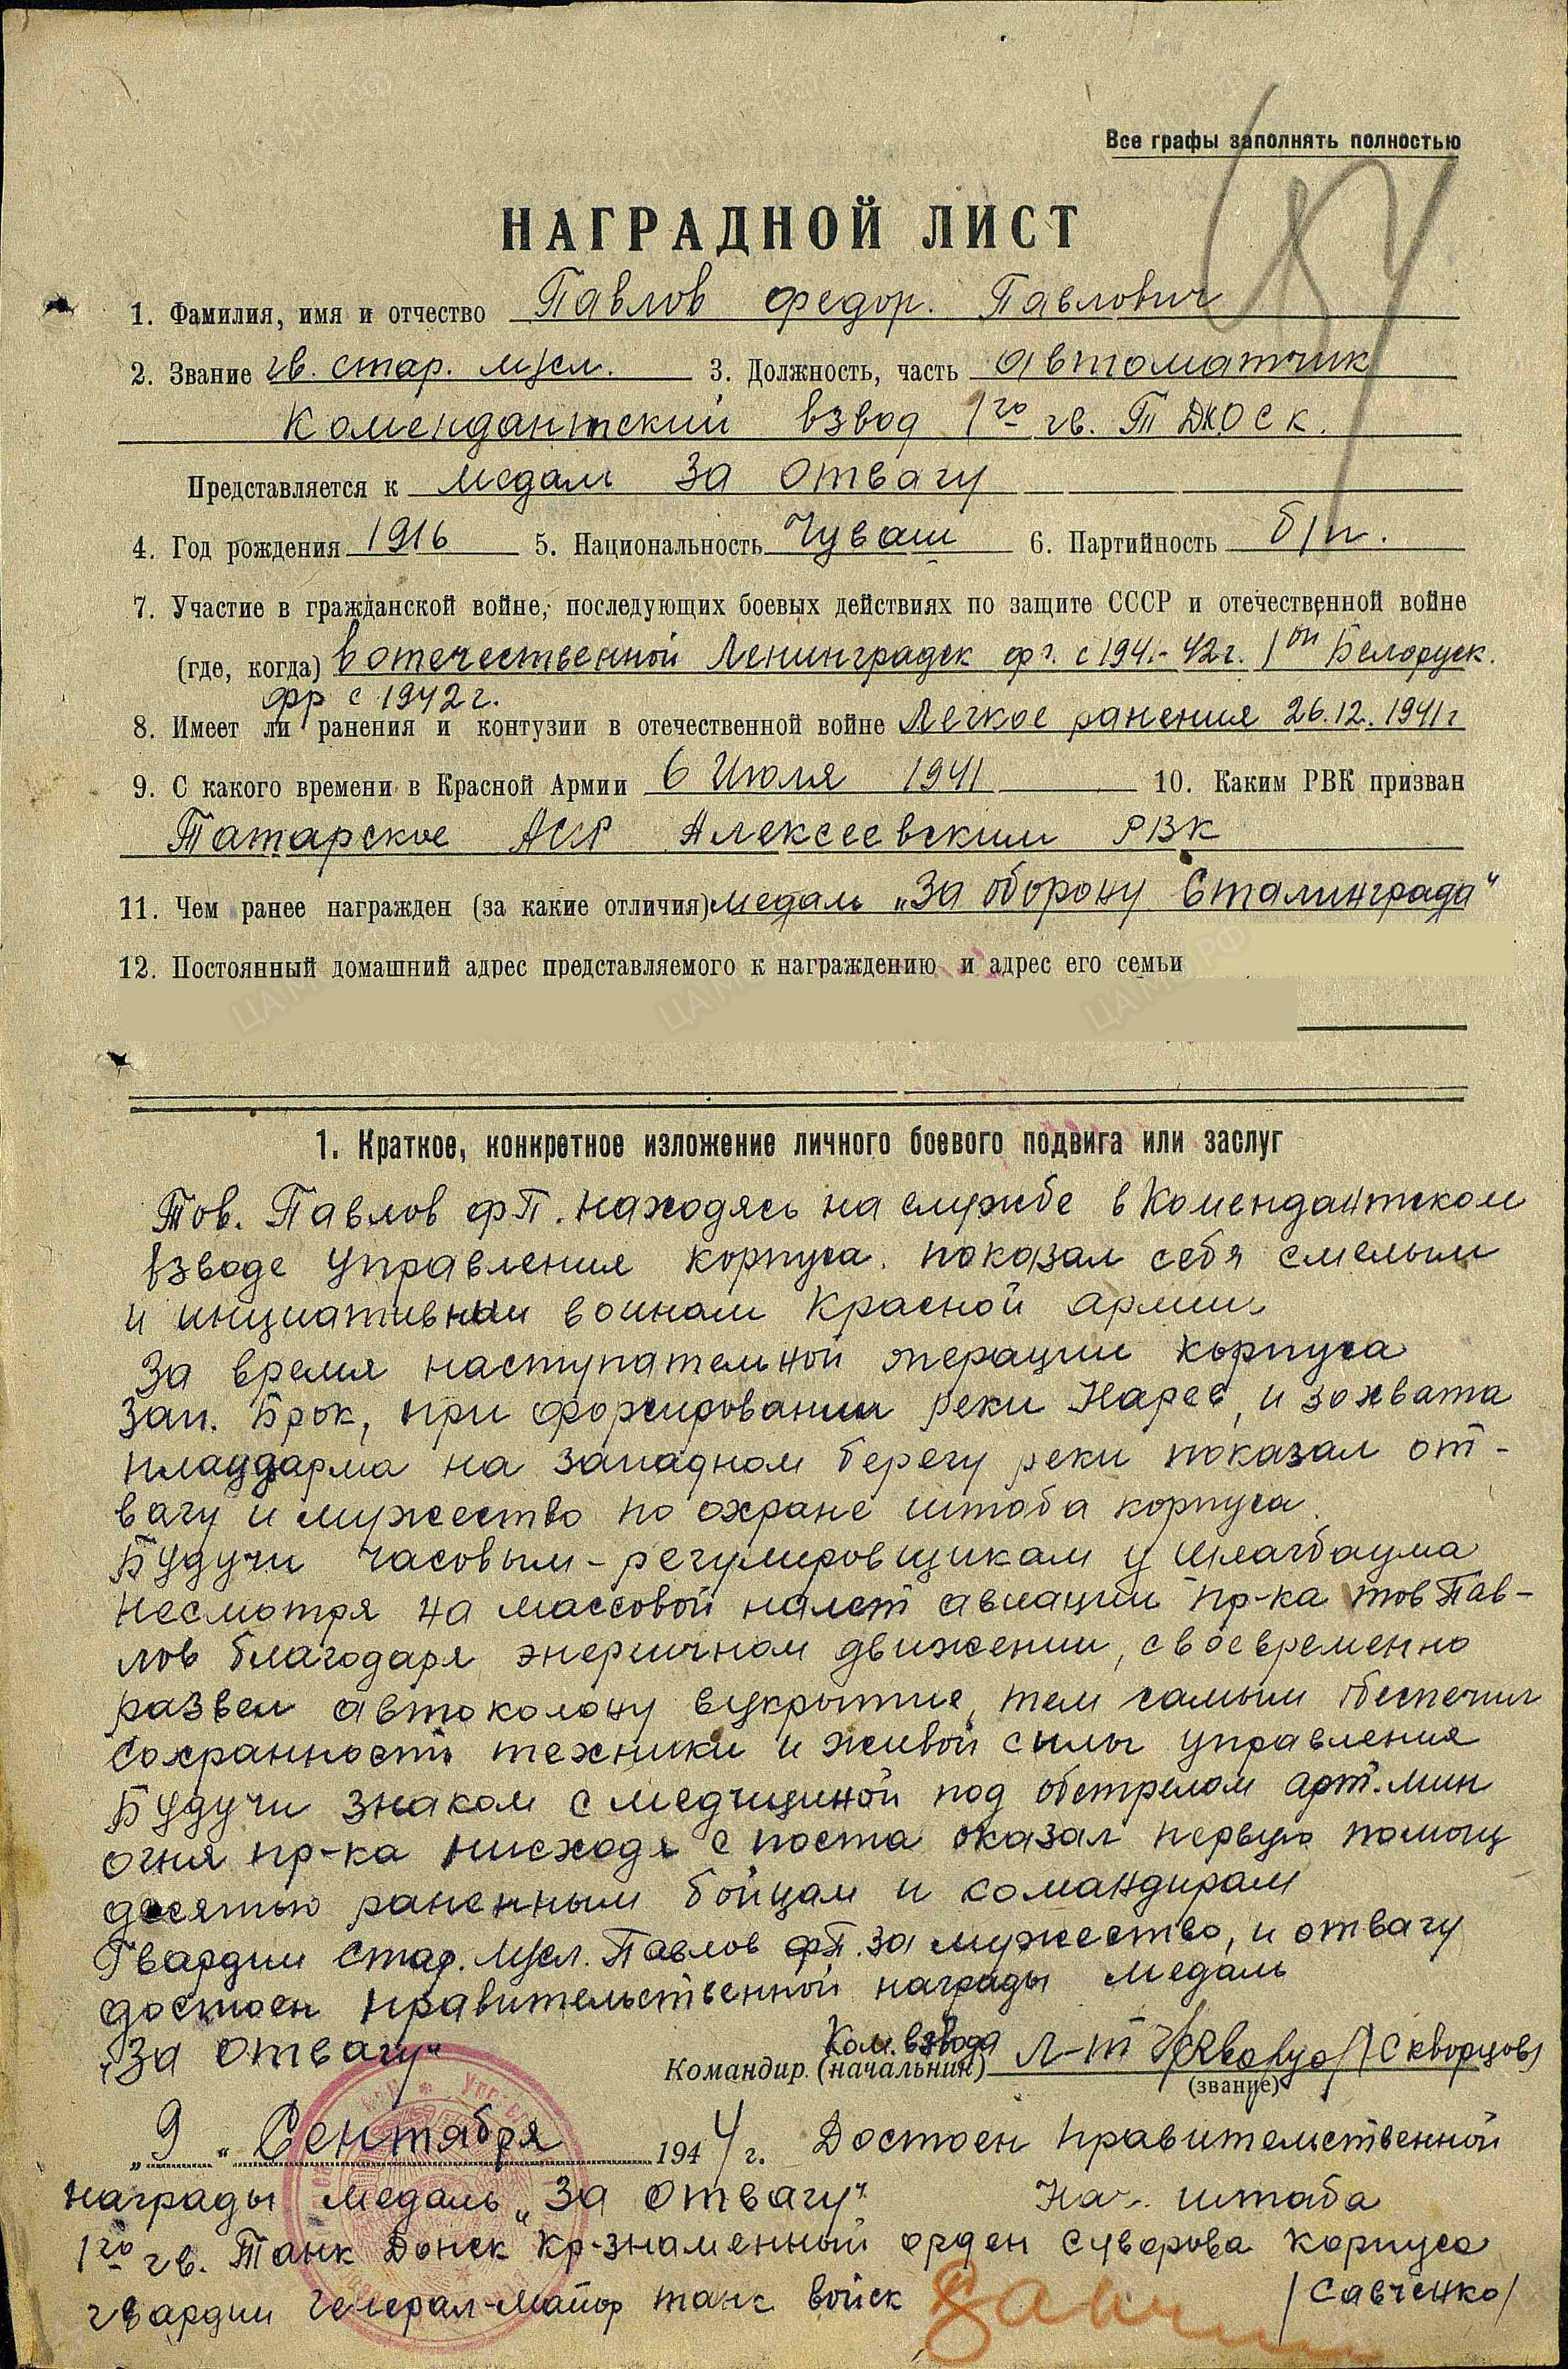 Все графы заполнять полностью
НАГРАДНОЙ ЛИСТ
1. Фамилия, имя и отчество Павлов Федор. Павлович
2. Звание гв. стар. мụсл. 3. Должность, часть автоматчик
Комендантский взвод 1го гв. Т ДКОСК.
Представляется к медаль За отвагу
4. Год рождения 1916 5. Национальность Чуваш 6. Партийность б/п.
7. Участие в гражданской войне, последующих боевых действиях по защите СССР и отечественной войне
(где, когда) в отечественной Ленинградск фр. с 1941-42г. 1ой Белорусск.
фр с 1942г.
8. Имеет ли ранения и контузии в отечественной войне Легкое ранение 26.12.1941г
9. С какого времени в Красной Армии 6 Июля 1941 10. Каким РВК призван
Татарское АССР Алексеевским РВК
11. Чем ранее награжден (за какие отличия) медаль „За оборону Сталинграда"
12. Постоянный домашний адрес представляемого к награждению и адрес его семьи
1. Краткое, конкретное изложение личного боевого подвига или заслуг
Тов. Павлов ФП. находясь на службе в Комендантском
взводе Управления корпуса. показал себя смелым
и инциативным воинам Красной армии
За время наступательной операции корпуса
зап. Брок, при форсировании реки Нарев, и захвата
плацдарма на западном берегу реки показал от-
вагу и мужество по охране штаба корпуса.
Будучи часовым-регулировщикам у шлагбаума
несмотря на массовой налет авиации пр-ка тов Пав-
лов благодаря энергичном движении, своевременно
развел автоколону вукрытие, тем самым обеспечил
сохранность техники и живой силы управления
Будучи знаком с медициной под обстрелом арт. мин
огня пр-ка нисходя с поста оказал первую помощ
десятью раненным бойцам и командирам
Гвардии Стар. Павлов ФП. за мужество, и отвагу
достоен правительственной награды медаль
„За Отвагу"
Ком. взвода
Командир (начальник) Л-т /Скворцов/
(звание)
„9" Сентября 1944 г. Достоен правительственной
награды медаль „За Отвагу" Нач. штаба
1го гв. Танк Донск Кр-знаменный орден Суворова корпуса
гвардии Генерал-Майор танк войск /Савченко/